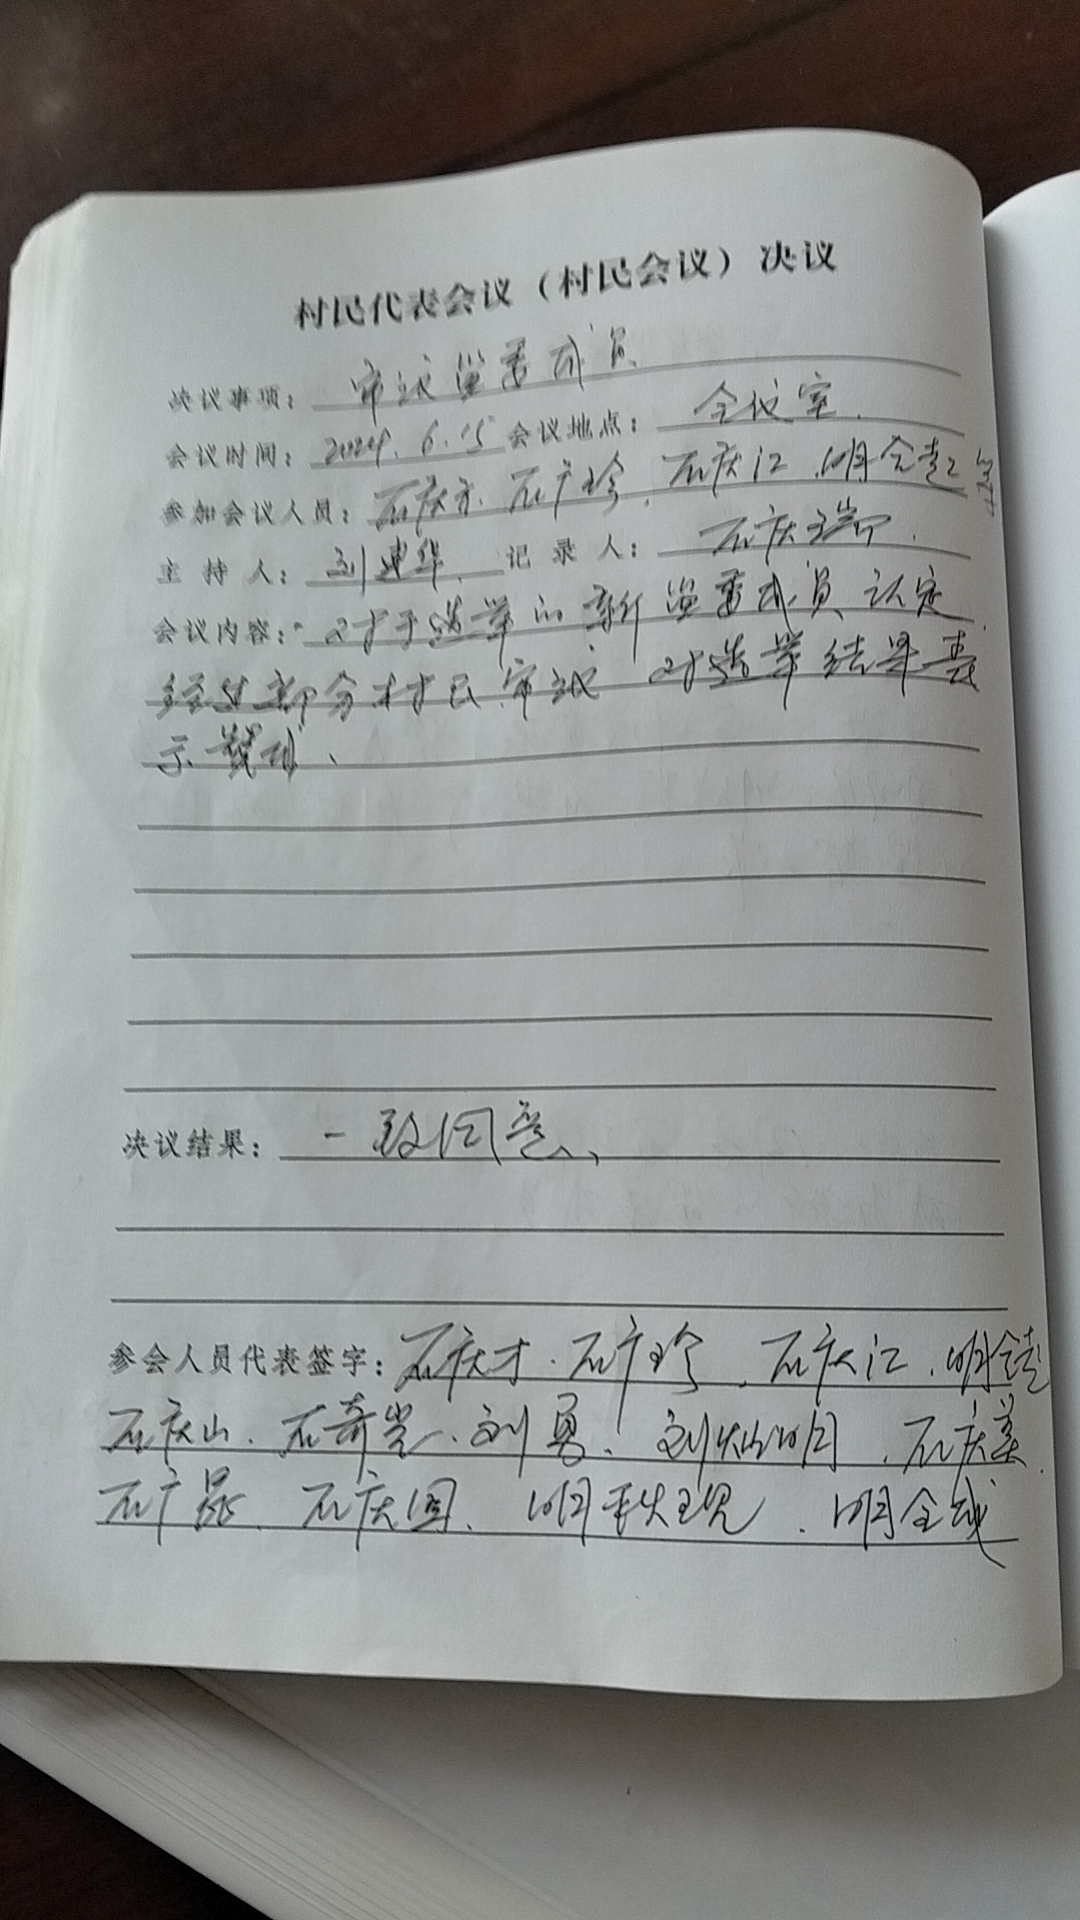 村民代表会议（村民会议）决议
决议事项：审议监委成员
会议时间：2024.6.15 会议地点：会议室.
参加会议人员：石庆才.石广珍.石庆江.明会 等
主持人：刘建华. 记录人：石庆瑞.
会议内容：对于选举的新监委成员认定.
经过部分村民审议 对选举结果表
示赞成、
决议结果：一致同意、
参会人员代表签字：石庆才.石广珍.石庆江.明
石庆山.石奇 .刘勇.刘灿明.石庆美.
石广昆.石庆国.明 .明全成